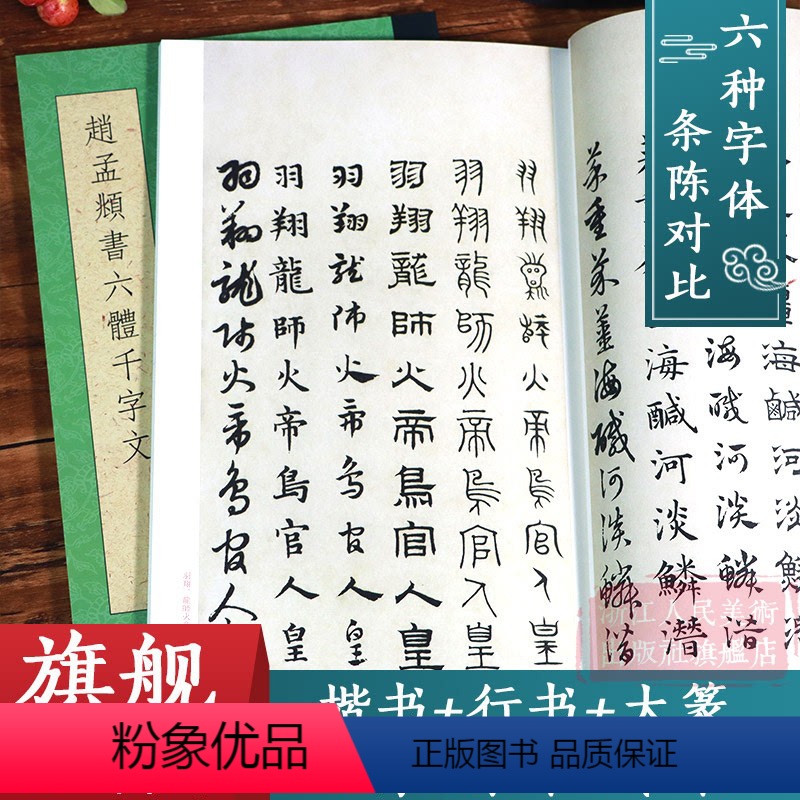 六种字体
条陈对比
趙孟頫書六體千字文
羽翔龍師火帝鳥官人皇
羽翔龍師火帝鳥官人皇
羽翔龍師火帝鳥官人皇
羽翔龍師火帝鳥官人皇
羽翔龍師火帝鳥官人皇
羽翔龍師火帝鳥官人
菜重芥薑海鹹河淡鱗潛
海鹹河淡鱗潛
海鹹河淡鱗潛
海鹹河淡
浙江人民美術
出版社旗艦店
旗舰
楷书+行书+大篆
粉象优品
正版图书 品质保证